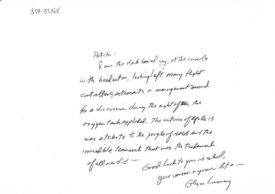 Patch -
I am the dark haired guy, at the console
in the headset on, looking left. Many flight
controllers, astronauts + management moved
for a discussion during the night of the
oxygen tank exploded. The return of Apollo 13
was a tribute to the people of and the
incredible teamwork that was the trademark
of all we did —
Good Luck to you in school,
your career + your life —
Glynn Lunney